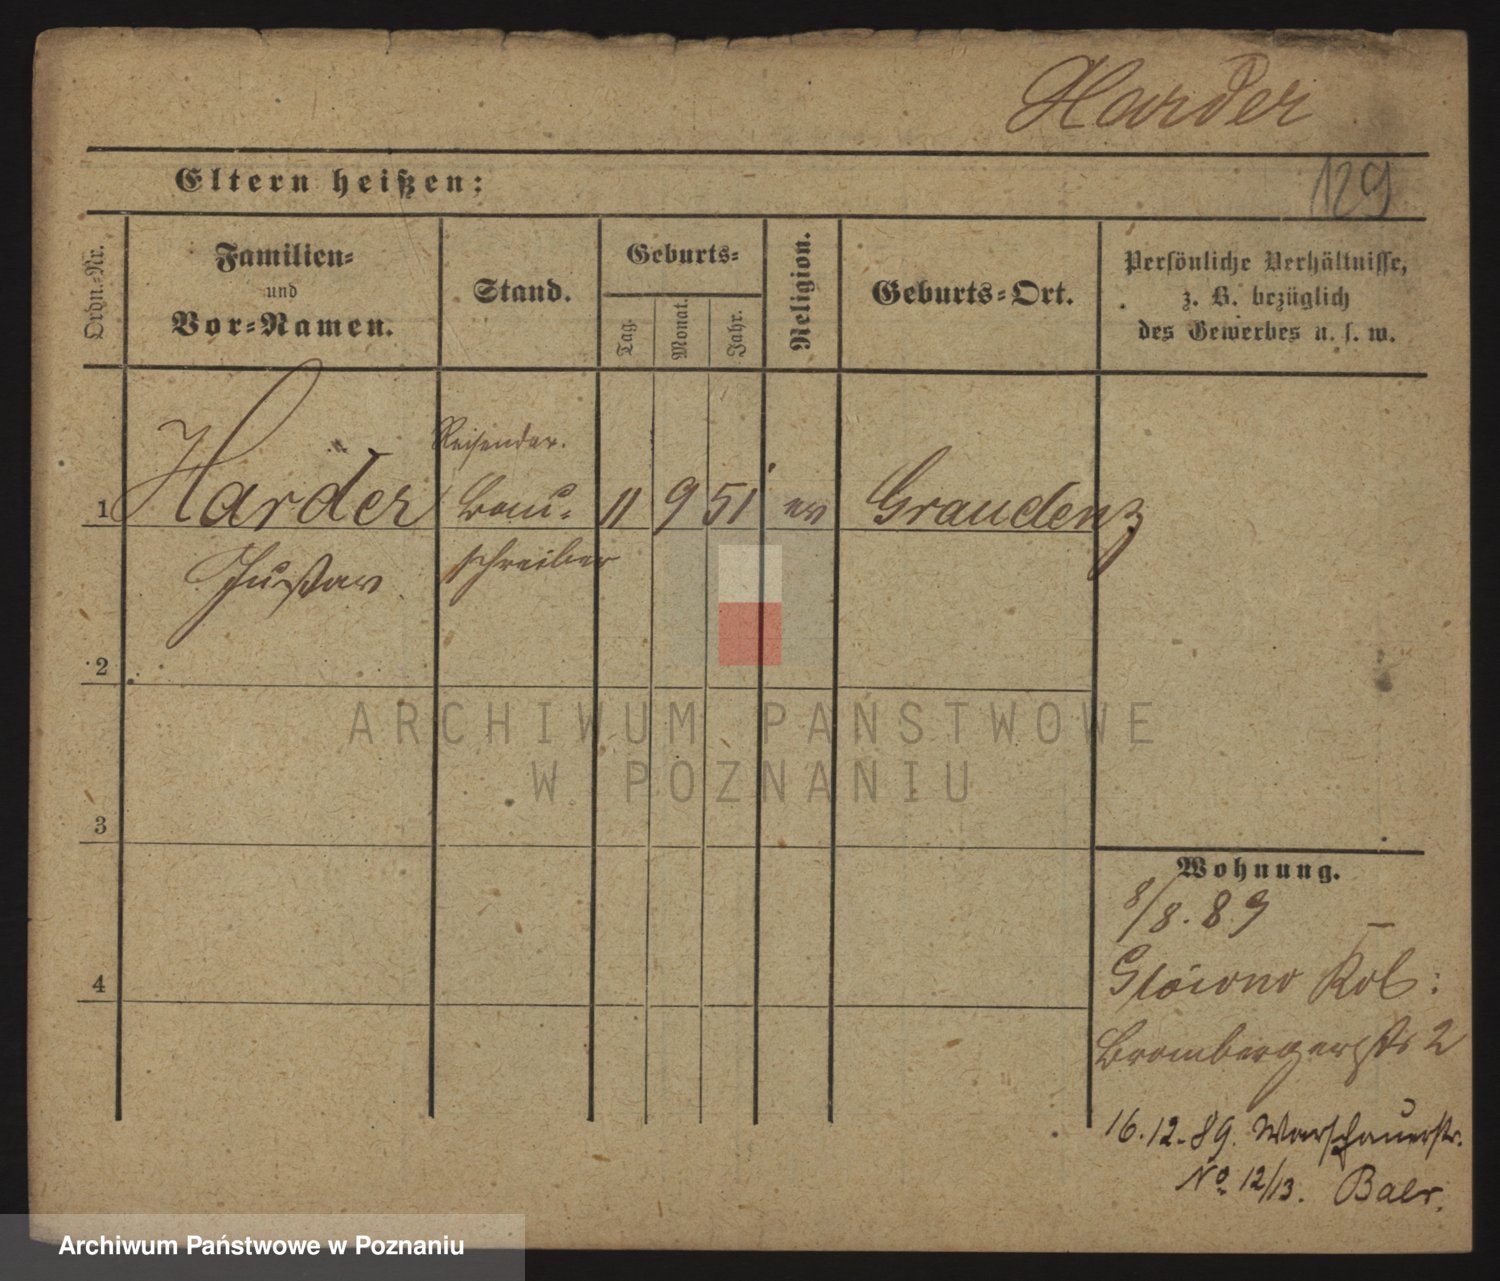 Harder
129
Eltern heißen:
Ordn.-Nr.
Familien-
und
Vor-Namen.
Stand.
Geburts-
Tag.
Monat.
Jahr.
Religion.
Geburts-Ort.
Persönliche Verhältnisse,
z. B. bezüglich
des Gewerbes u. s. w.
Reisender.
1 Harder Bau- 11 9 51 ev Graudenz
Gustav schreiber
2
ARCHIWUM PAŃSTWOWE
W POZNANIU
3
Wohnung.
8/8. 89
4
Brombergerstr 2
16.12.89. Warschauerstr.
No. 12/13. Baer.
Archiwum Państwowe w Poznaniu